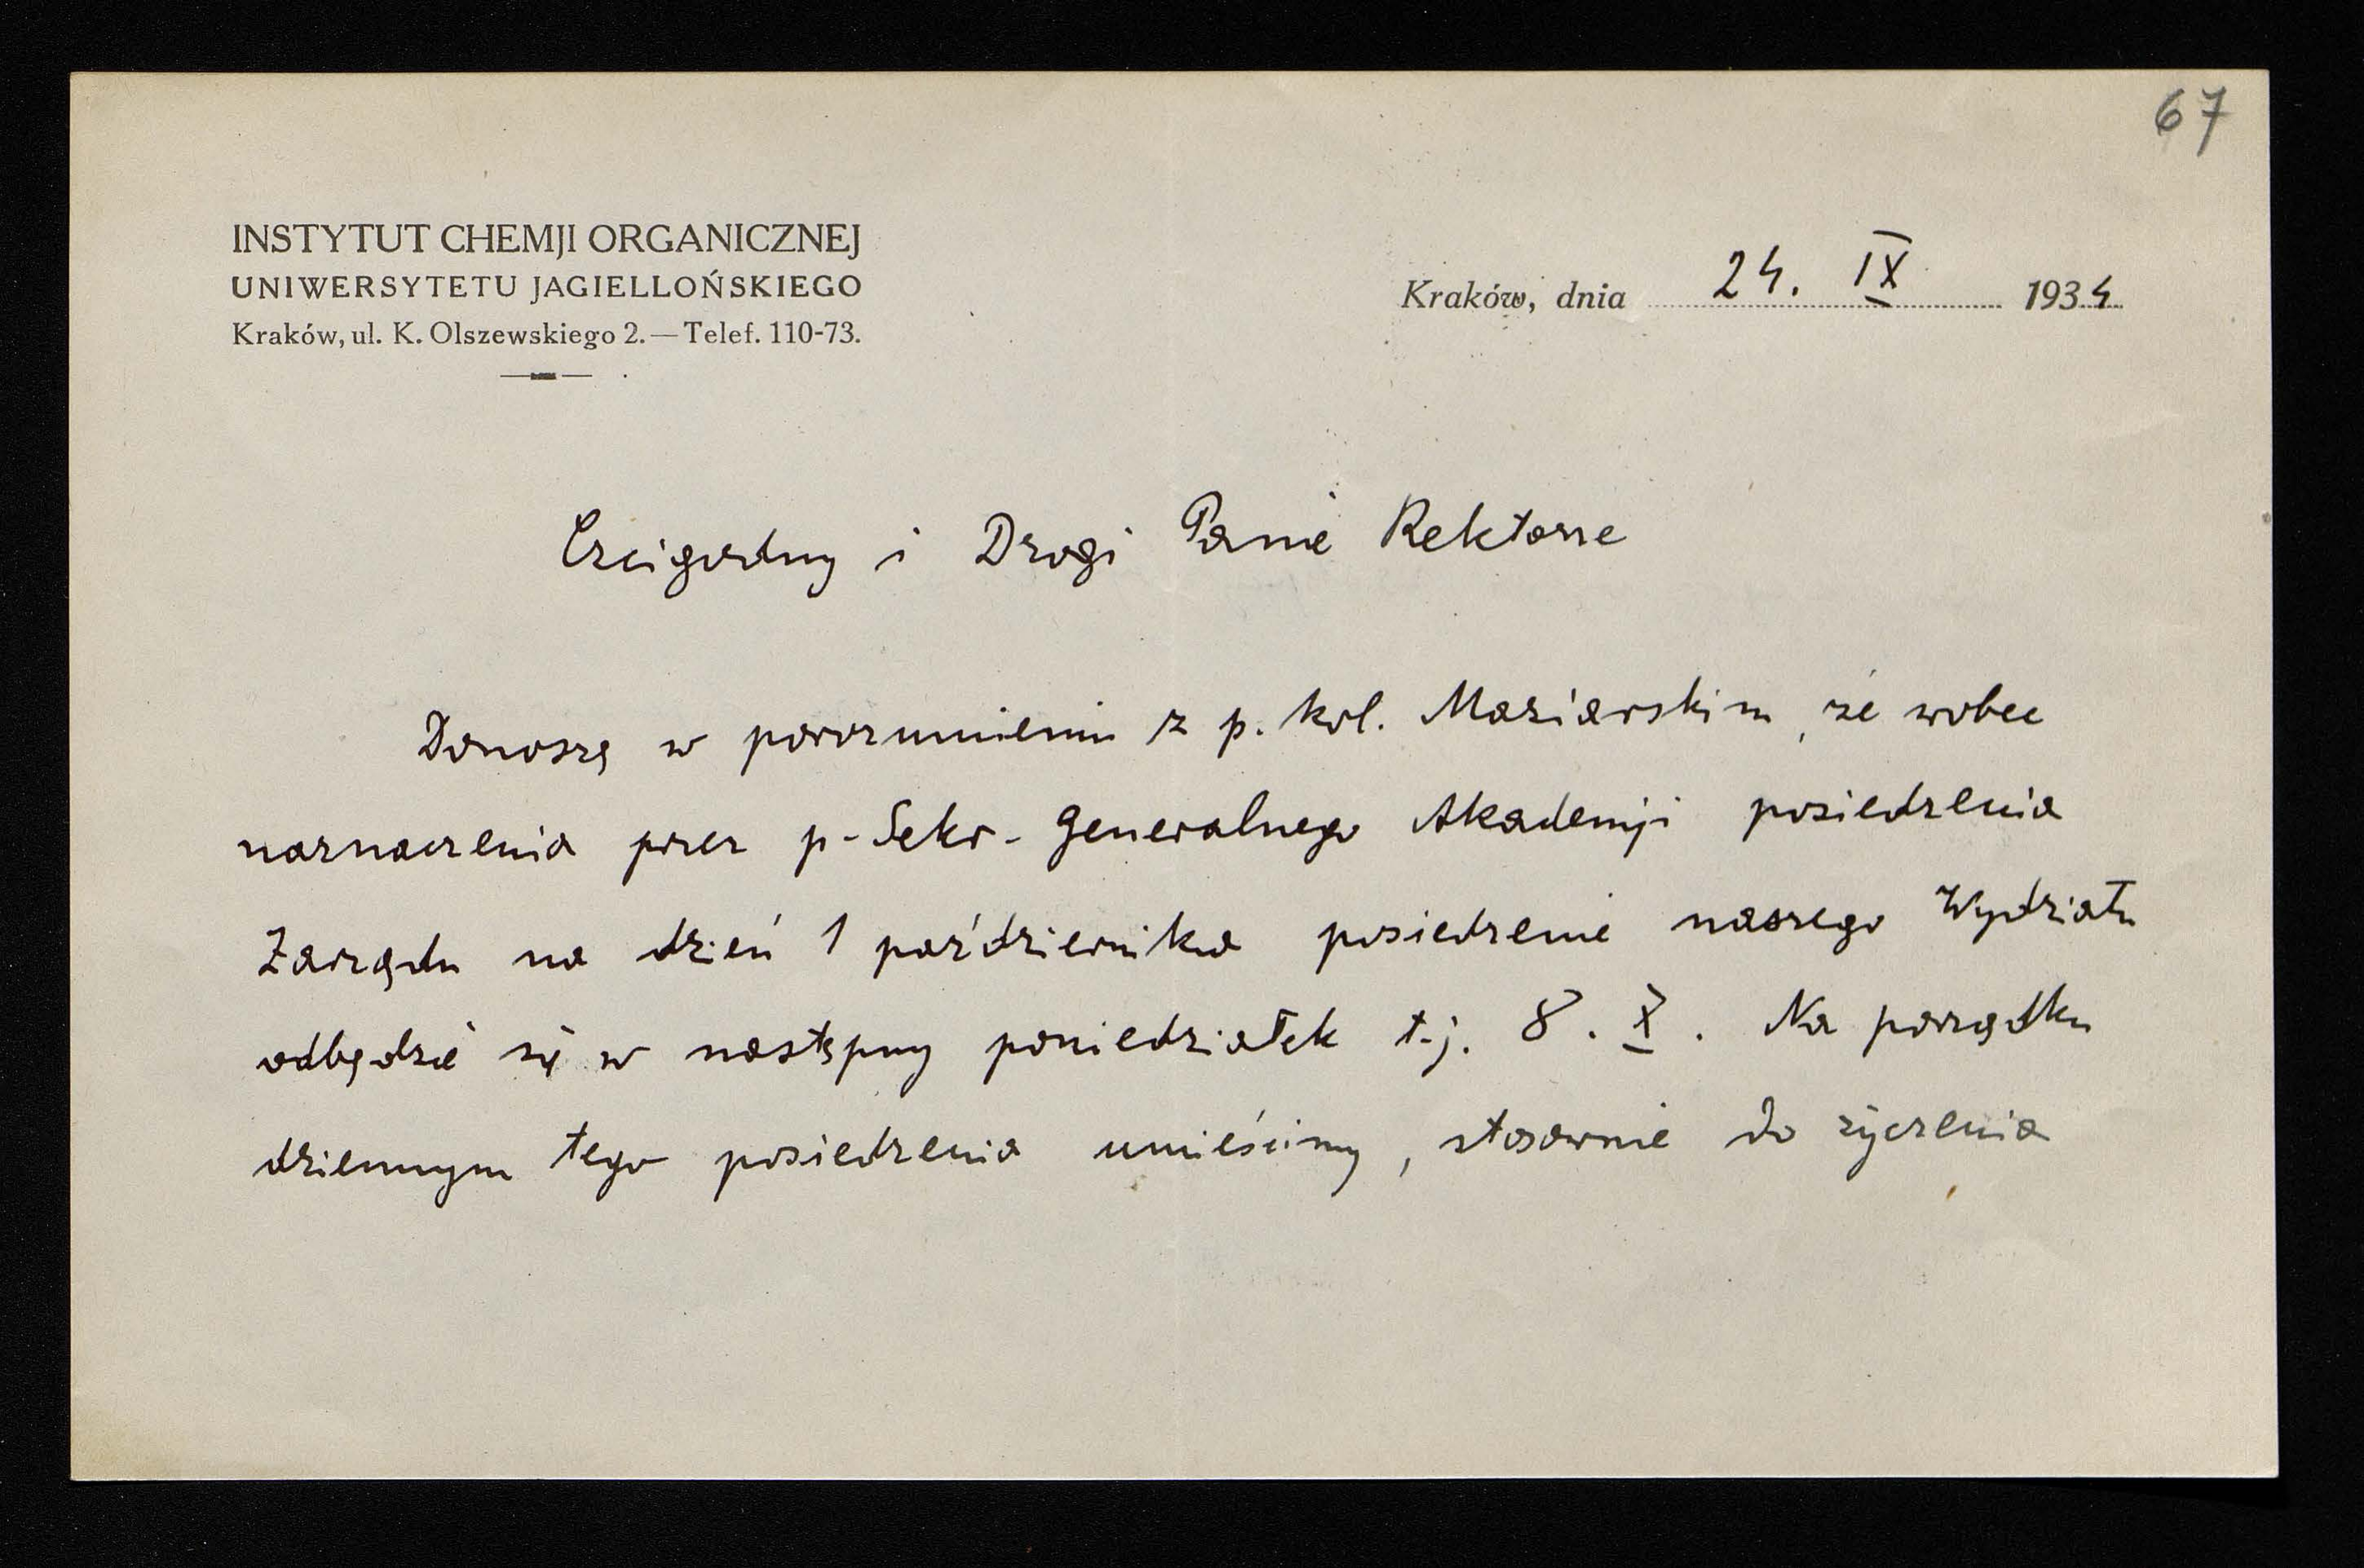 67
INSTYTUT CHEMJI ORGANICZNEJ
UNIWERSYTETU JAGIELLOŃSKIEGO
Kraków, ul. K. Olszewskiego 2. — Telef. 110-73.
Kraków, dnia 24. IX 1934
Czcigodny i Drogi Panie Rektorze
Donoszę w porozumieniu z p. kol. Maziarskim, że wobec
naznaczenia przez p. Sekr. Generalnego Akademji posiedzenia
Zarządu na dzień 1 października posiedzenie naszego Wydziału
odbędzie się w następny poniedziałek t.j. 8. X. Na porządku
dziennym tego posiedzenia umieścimy, stosownie do życzenia